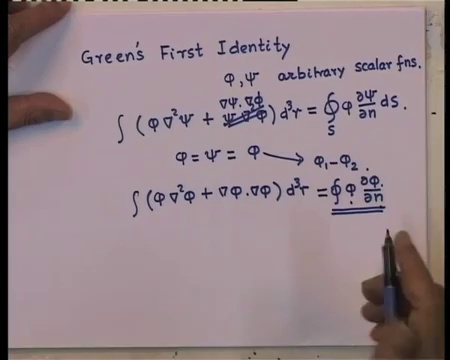 Green's First Identity
φ, ψ arbitrary scalar fns.
∇ψ.∇φ
∫ (φ ∇²ψ + ψ ∇²φ) d³r = ∮ φ ∂ψ/∂n dS.
S
φ = ψ = φ → φ₁-φ₂.
∫ (φ ∇²φ + ∇φ.∇φ) d³r = ∮ φ ∂φ/∂n